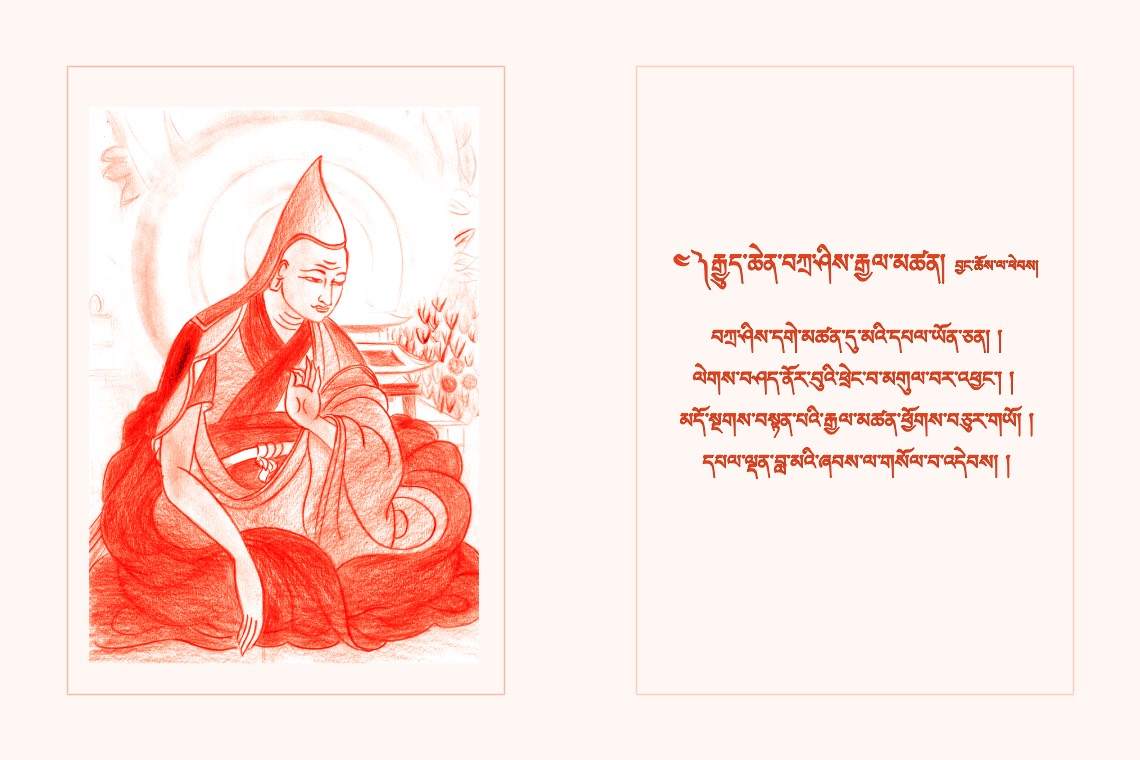 ༄༽ རྒྱུད་ཆེན་བཀྲ་ཤིས་རྒྱལ་མཚན། བྱང་ཆོས་ལ་ཕེབས།
བཀྲ་ཤིས་དགེ་མཚན་དུ་མའི་དཔལ་ཡོན་ཅན། །
ལེགས་བཤད་ནོར་བུའི་ཕྲེང་བ་མགུལ་བར་འཕྱང་། །
མདོ་སྔགས་བསྟན་པའི་རྒྱལ་མཚན་ཕྱོགས་བཅུར་གཡོ། །
དཔལ་ལྡན་བླ་མའི་ཞབས་ལ་གསོལ་བ་འདེབས། །